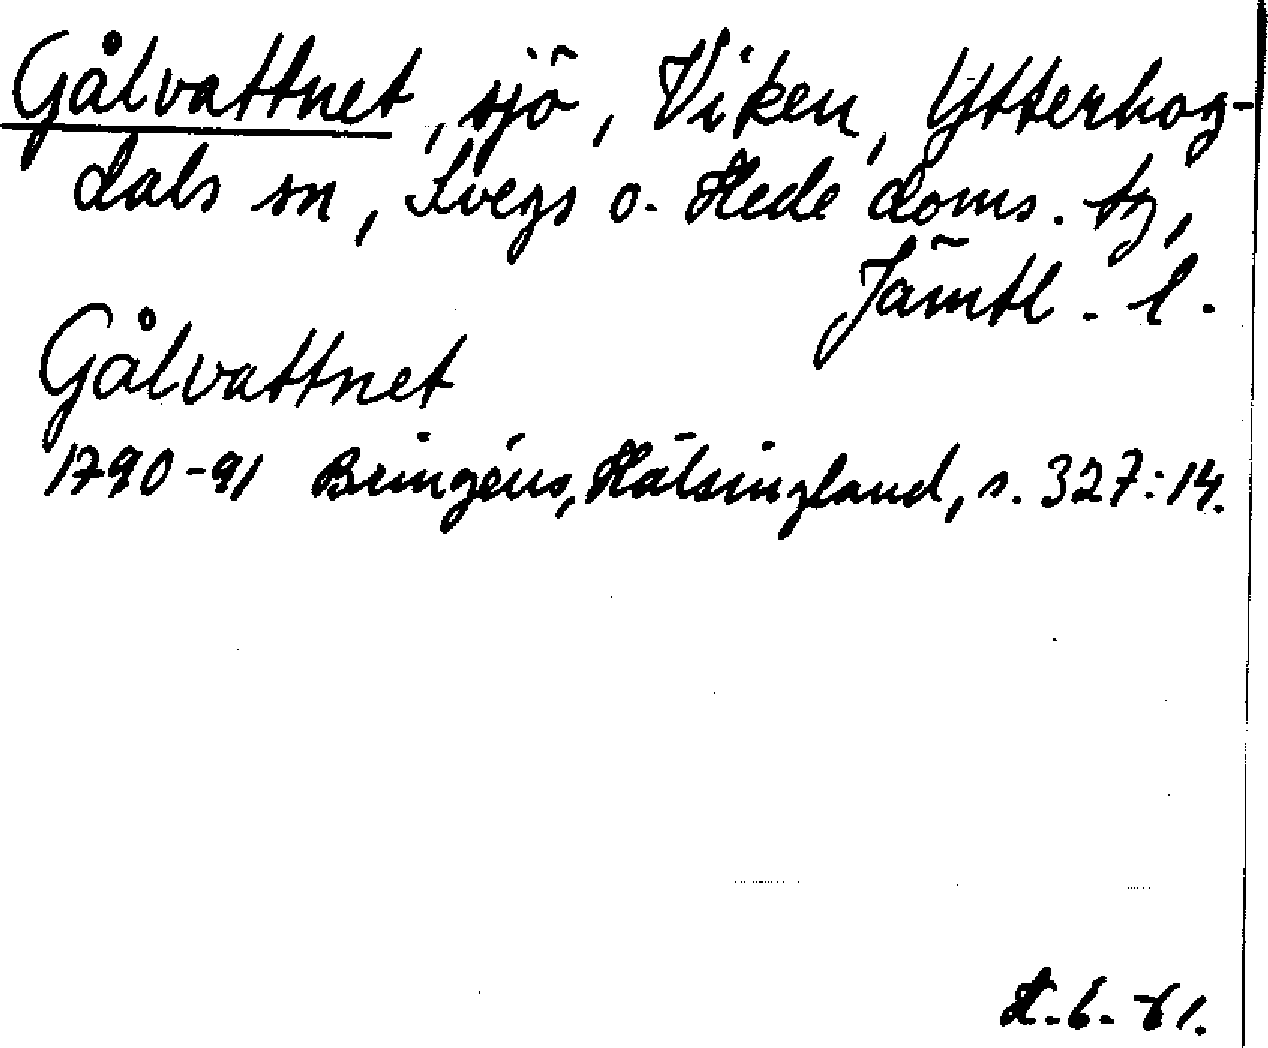 Gålvattnet, sjö, Viken, Ytterhog-
dals sn, Svegs o. Hede doms. tg,
Jämtl. l.
Gålvattnet
1790-91 Bringéus, Hälsingland, s. 327:14.
H. 6. -61.